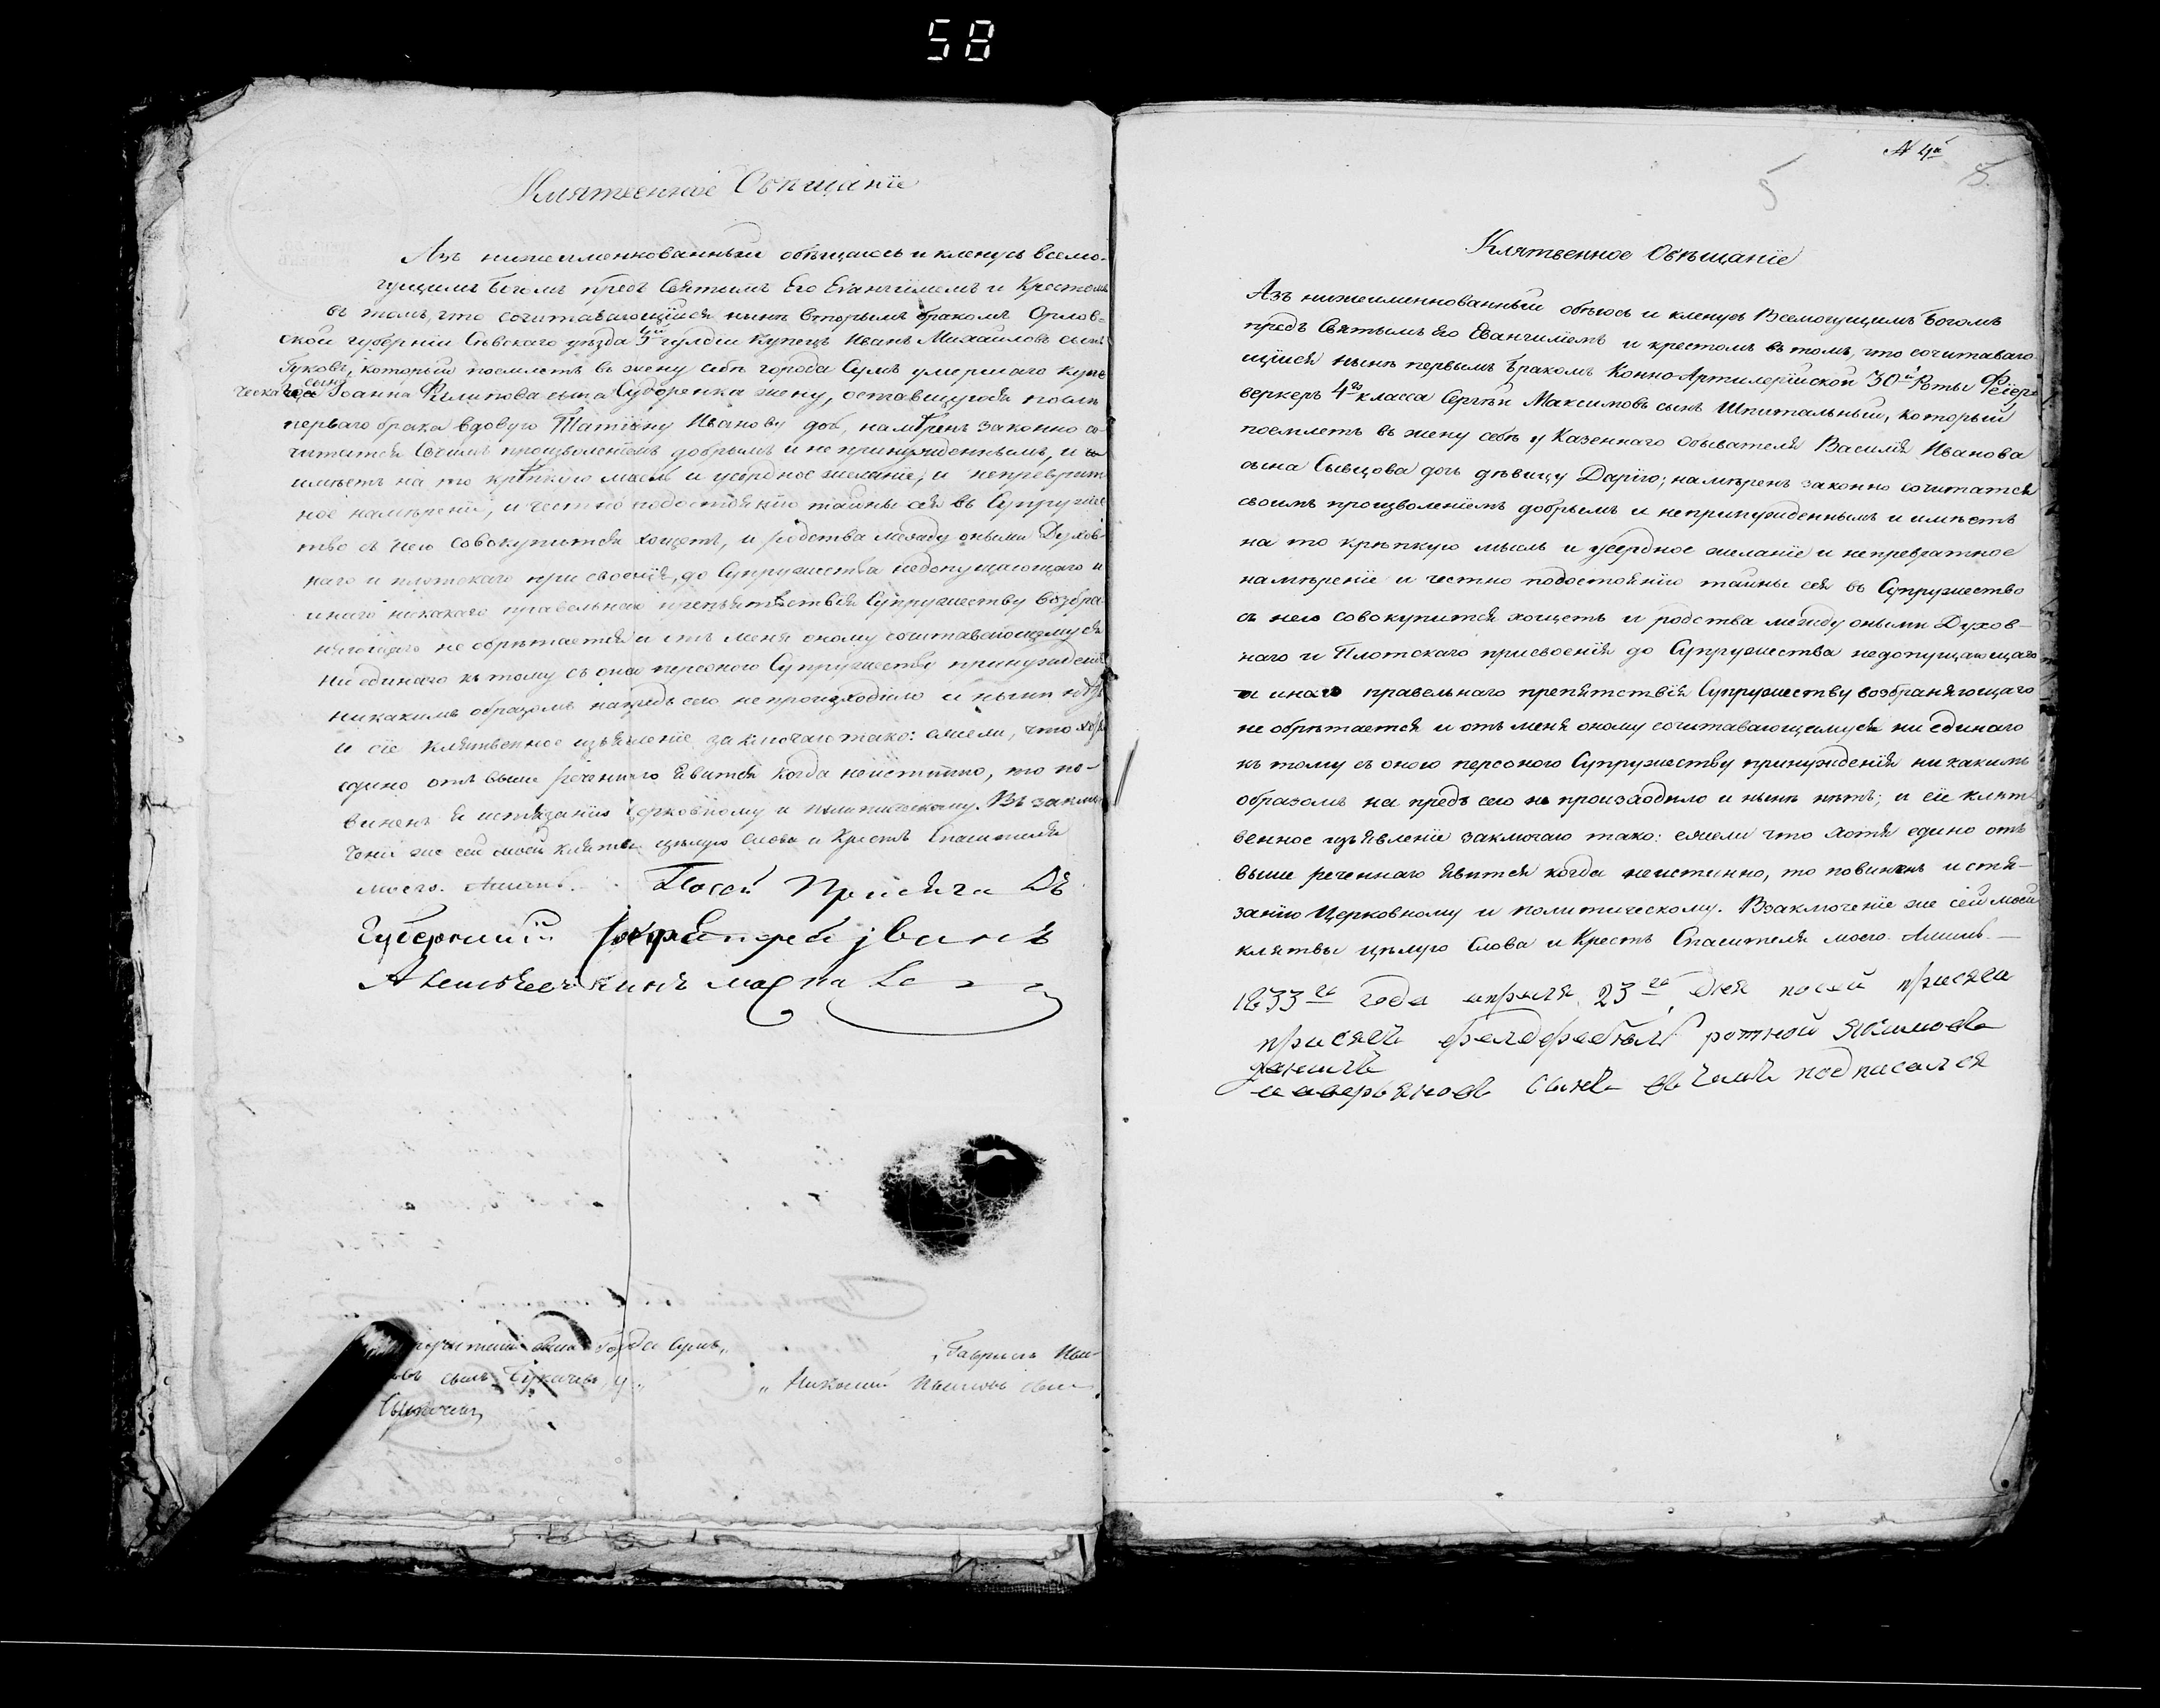 58
Клятвенное Обѣщаніе
Азъ нижеименнованный обѣщаюсь и кленусь всемо-
гущимъ Богомъ предъ Святымъ Его Евангиліемъ и Крестомъ
въ томъ, что сочитавающійся нынѣ вторымъ бракомъ Орлов-
ской губерніи Сѣвскаго уѣзда гулдіи Купецъ Иванъ Михайловъ сынъ
который поемлетъ въ жену себѣ города Сумъ умершаго купе
ческаго сына Іоанна Филипова сына жену, оставшуюся послѣ
перваго брака вдовую Татіану Иванову доч, намѣренъ законно со-
читатся Своимъ произволеніемъ добрымъ и непринужденнымъ, и
имѣетъ на то крѣпкую мысль и усердное желаніе, и непревратн
ное намѣреніе, и честно подостоянію тайны сея въ Супруже
тво съ нею совокупится хощетъ, и родства между оными Духов-
наго и плотскаго присвоенія, до Супружества недопущающаго и
инаго никакаго правельнаго препятствія Супружеству возбра-
няющаго не обрѣтается и отъ меня оному сочитавающемуся
ни единаго къ тому съ оною персоною Супружеству принужденія
никакимъ образомъ напредъ сего не происходило и нынѣ нѣтъ
и сіе клятвенное изъявленіе заключаю тако: ежели, что хотя
едино отъ выше реченнаго явится когда неистинно, то по-
виненъ я истязанію церковному и политическому. Въ заклю
ченіи же сей моей клятвы цѣлую Слова и Крестъ Спасителя
моего. Аминь. Посей Присяга
Губернскій Секретарь Іванъ
города Сумъ„ „Гавриилъ Ива-
въ сынъ „ Николай Ивановъ сынъ
N 4й
5
Клятвенное Обѣщаніе
Азъ нижеименнованный обѣюсь и кленусь Всемогущимъ Богомъ
предъ Святымъ Его Евангиліемъ и крестомъ въ томъ, что сочитаваго
щійся нынѣ первымъ бракомъ Конно-Артилерійской 30й Роты Феиер
веркеръ 4го класса Сергѣй Максимовъ сынъ Шпитальный, который
поемлетъ въ жену себѣ у Казеннаго обывателя Василія Иванова
сына Сывцова дочь дѣвицу Дарію; намѣренъ законно сочитатся
своимъ произволеніемъ добрымъ и непринужденнымъ и имѣетъ
на то крѣпкую мысль и усердное желаніе и непревратное
намѣреніе и честно подостоянію тайны сея въ Супружество
съ нею совокупится хощетъ и родства между оными Духов-
наго и Плотскаго присвоенія до Супружества недопущающаго
и инаго правельнаго препятствія Супружеству возбраняющаго
не обрѣтается и отъ меня оному сочитавающемуся ни единаго
къ тому съ оною персоною Супружеству принужденія никакимъ
образомъ на предъ сего не произходило и нынѣ нѣтъ; и сіе клят
венное изъявленіе заключаю тако: ежели что хотя едино отъ
выше реченнаго явится когда неистинно, то повиненъ истя-
занію Церковному и политическому. Взаключеніе же сей моей
клятвы цѣлую Слова и Крестъ Спасителя моего. Аминь. —
1833го года апреля 23го дня посей присяга
присягъ фелдфебель ротной якимовъ
аверьяновъ сынъ въ томъ подписался